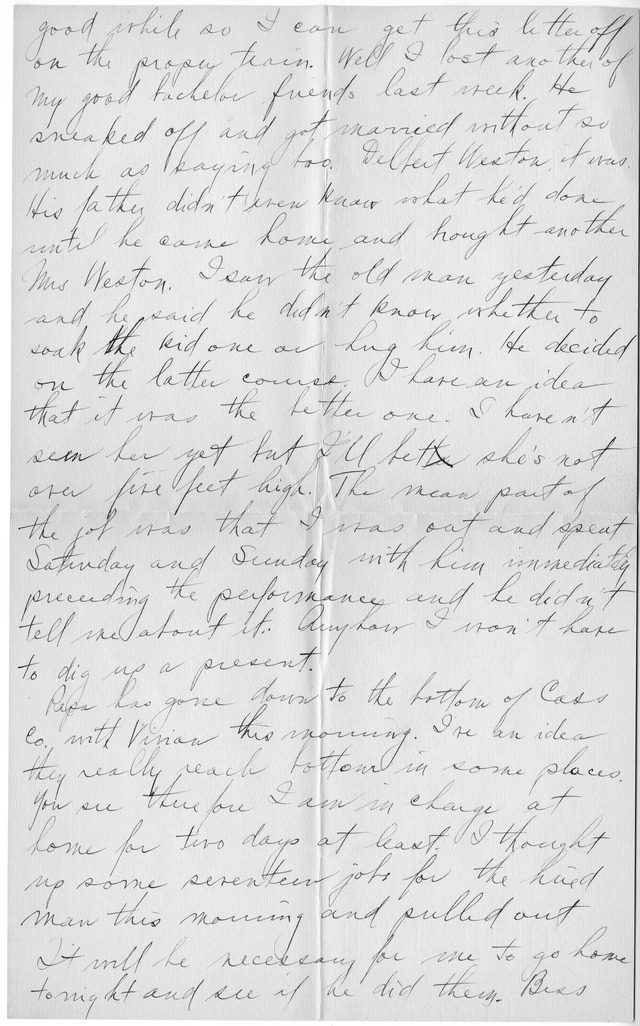 good while so I can get this letter off
on the proper train. Well I lost another of
my good bachelor friends last week. He
sneaked off and got married without so
much as saying boo. Delbert Weston, it was.
His father didn't even know what he'd done
until he came home and brought another
Mrs Weston. I saw the old man yesterday
and he said he didn't know whether to
soak the kid one or hug him. He decided
on the latter course. I have an idea
that it was the better one. I haven't
seen her yet but I'll bet she's not
over five feet high. The mean part of
the job was that I was out and spent
Saturday and Sunday with him immediately
preceeding the performance and he didn't
tell me about it. Anyhow I won't have
to dig up a present.
Papa has gone down to the bottom of Cass
Co. with Vivian this morning. I've an idea
they really reach bottom in some places.
You see therefore I am in charge at
home for two days at least. I thought
up some seventeen jobs for the hired
man this morning and pulled out
It will be necessary for me to go home
tonight and see if he did them. Bess